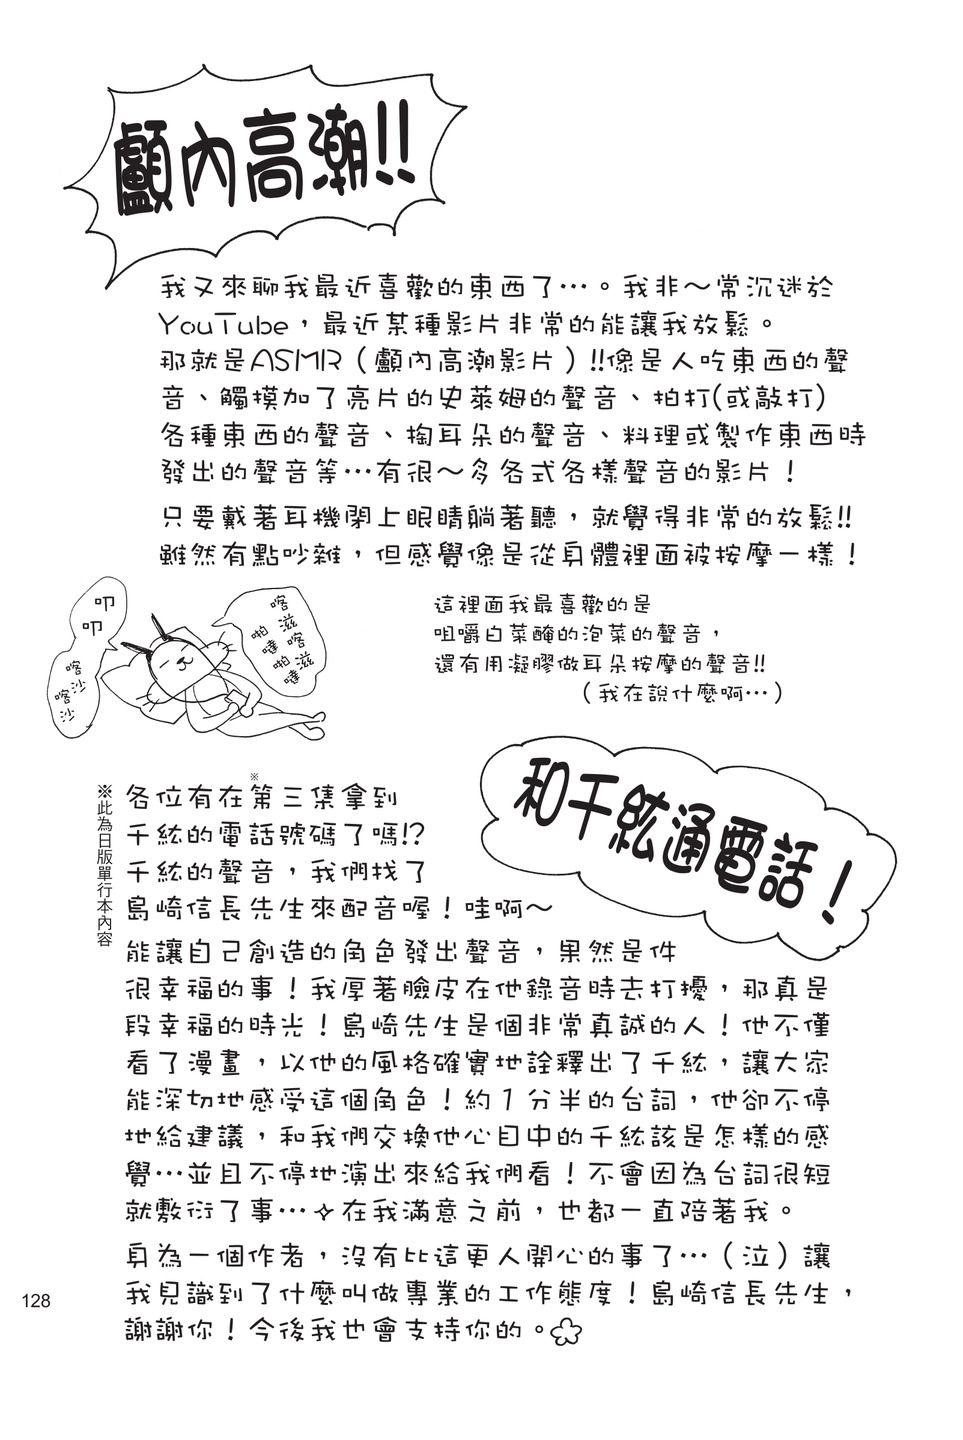 顱內高潮!!
我又來聊我最近喜歡的東西了…。我非～常沉迷於
YouTube，最近某種影片非常的能讓我放鬆。
那就是ASMR（顱內高潮影片）!!像是人吃東西的聲
音、觸摸加了亮片的史萊姆的聲音、拍打(或敲打)
各種東西的聲音、掏耳朵的聲音、料理或製作東西時
發出的聲音等…有很～多各式各樣聲音的影片！
只要戴著耳機閉上眼睛躺著聽，就覺得非常的放鬆!!
雖然有點吵雜，但感覺像是從身體裡面被按摩一樣！
這裡面我最喜歡的是
咀嚼白菜醃的泡菜的聲音，
還有用凝膠做耳朵按摩的聲音!!
（我在說什麼啊…）
叩
叩
喀沙
喀沙
喀滋喀滋
啪噠啪噠
和千紘通電話！
※
各位有在第三集拿到
千紘的電話號碼了嗎!?
千紘的聲音，我們找了
島崎信長先生來配音喔！哇啊～
能讓自己創造的角色發出聲音，果然是件
很幸福的事！我厚著臉皮在他錄音時去打擾，那真是
段幸福的時光！島崎先生是個非常真誠的人！他不僅
看了漫畫，以他的風格確實地詮釋出了千紘，讓大家
能深切地感受這個角色！約1分半的台詞，他卻不停
地給建議，和我們交換他心目中的千紘該是怎樣的感
覺…並且不停地演出來給我們看！不會因為台詞很短
就敷衍了事…✧在我滿意之前，也都一直陪著我。
身為一個作者，沒有比這更人開心的事了…（泣）讓
我見識到了什麼叫做專業的工作態度！島崎信長先生，
謝謝你！今後我也會支持你的。
※此為日版單行本內容
128